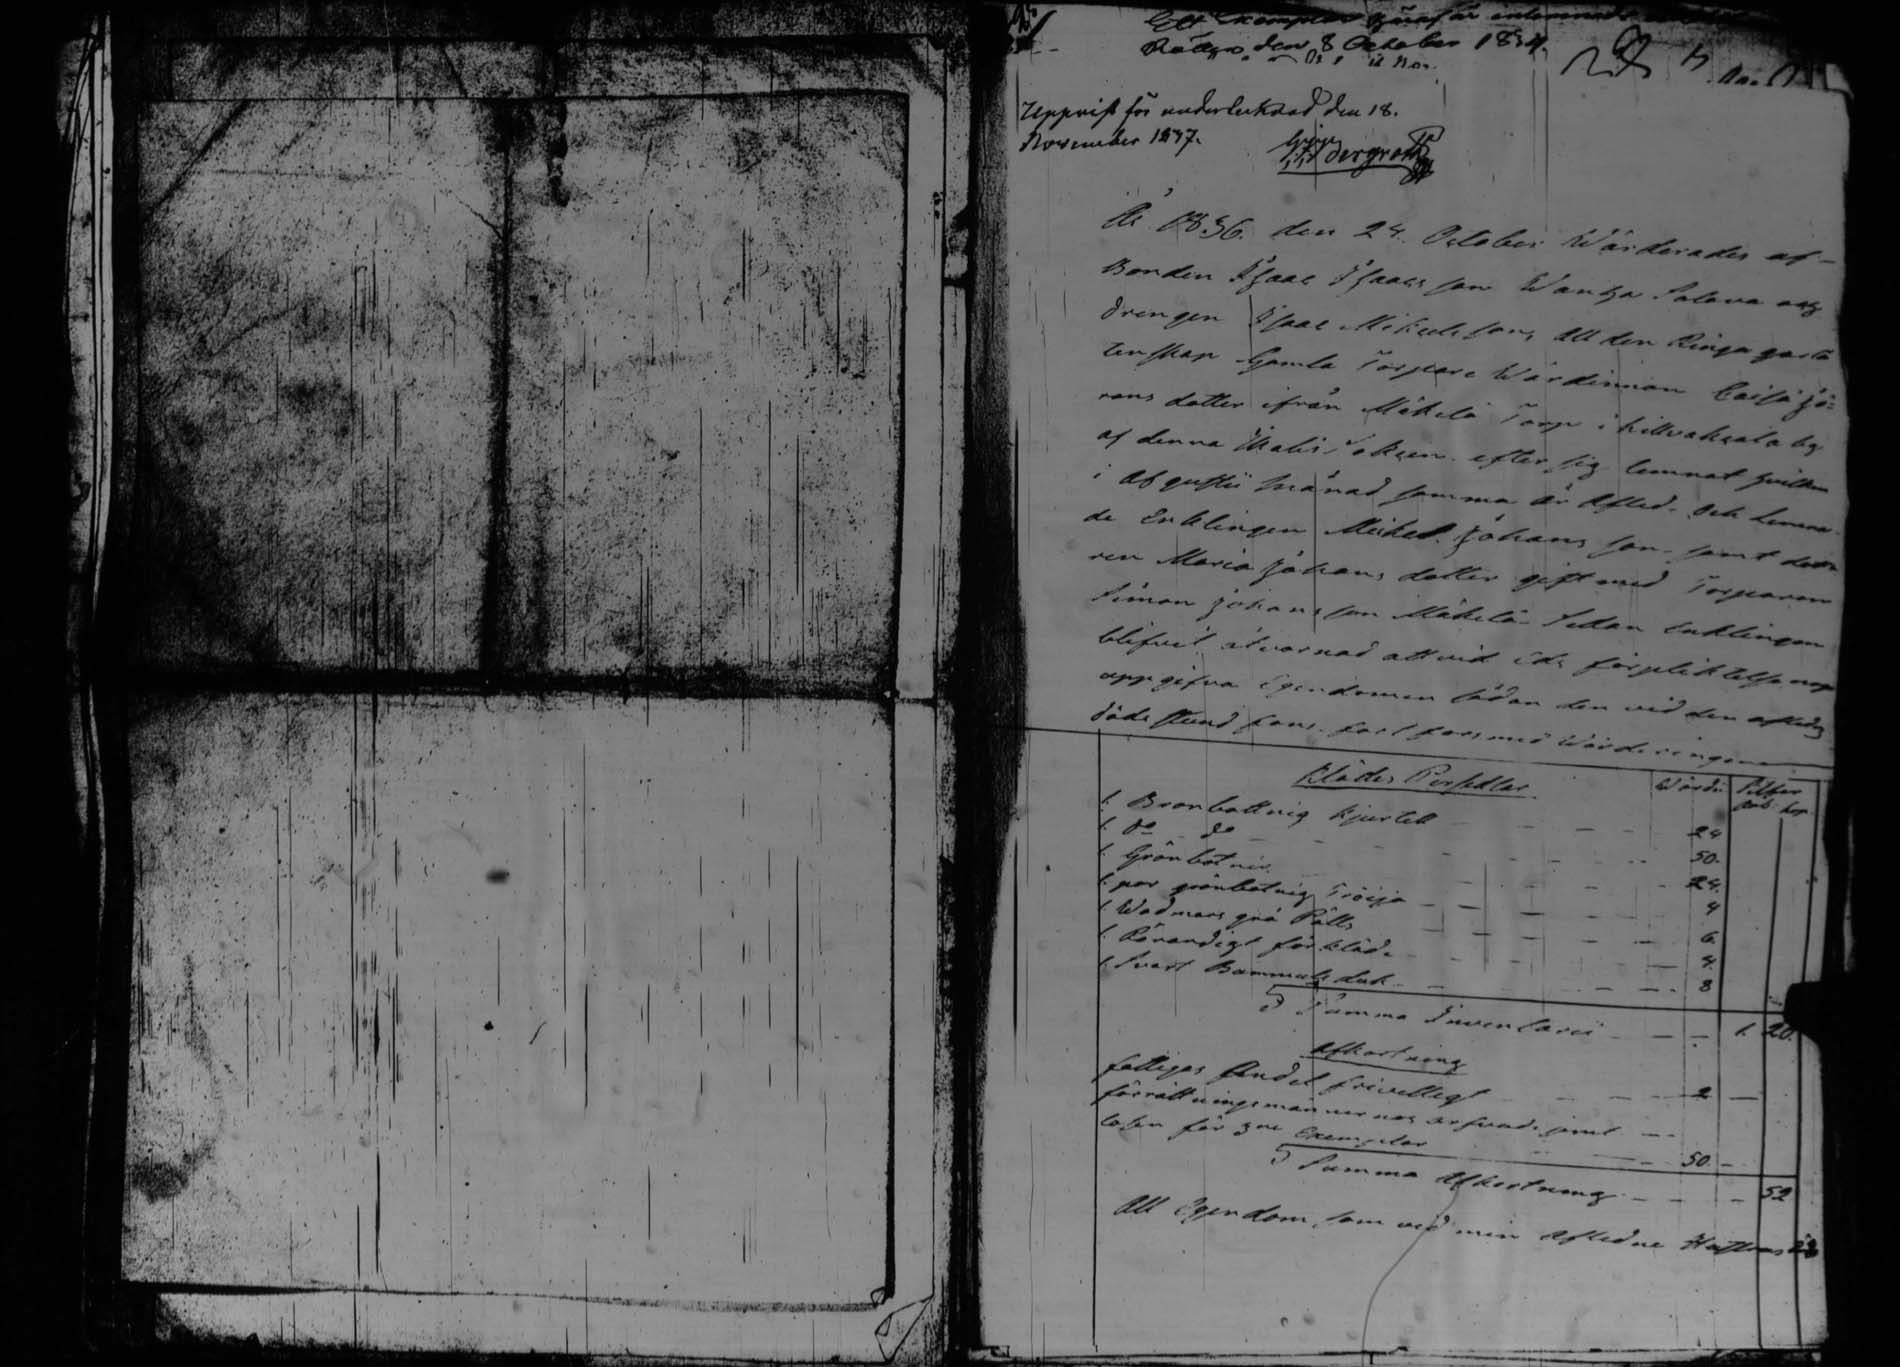 Ett Exemplar häraf är inlemnadt
den 8 October 1837.
Uppvist för undertecknad den 18.
November 1837.
År 1836. den 24. October Wärderades af
Bonden Isaac Isaacs son Wanha Salava och
drengen Isaac Mikels son, all den Ringa qvarlå
tenskap Gamla Torpare Wärdinnan Caisa Jö-
rans dotter ifrån Mäkelä Torp i by
af denna Ikalis Sokn efter sig lemnat hvilken
i Augusti månad samma år afled. Och lemna-
de Enklingen Mickel Johans son samt dott
ren Maria Johans dotter gift med Torparen
Simon Johans son Mäkelä Sedan Enklingen
blifvit åtvarnad att vid Eds förpliktelse
uppgifva Egendomen sådan den vid den afledes
döds stund fans. fort fors med Wärderingen
Klädes Persedlar Wärde Silfver
Rub. kop.
1. Brunbottnig Kjortel 24
1. do do 50.
1. Grönbotnig 24.
1. par grönbotnig Tröija 4
1. Wadmars grå Pälls 6.
1. förkläde 4.
1. Svart Bommuls duk 8
Summa Inventarii 1. 20.
Afkortning
Fattigas Andel frivilligt 2
förrättningsmännernas arfvode jemt
lösen för 3ne Exemplar 50.
Summa Afkortning 52
All Egendom, som ved min Afledne Hustrus